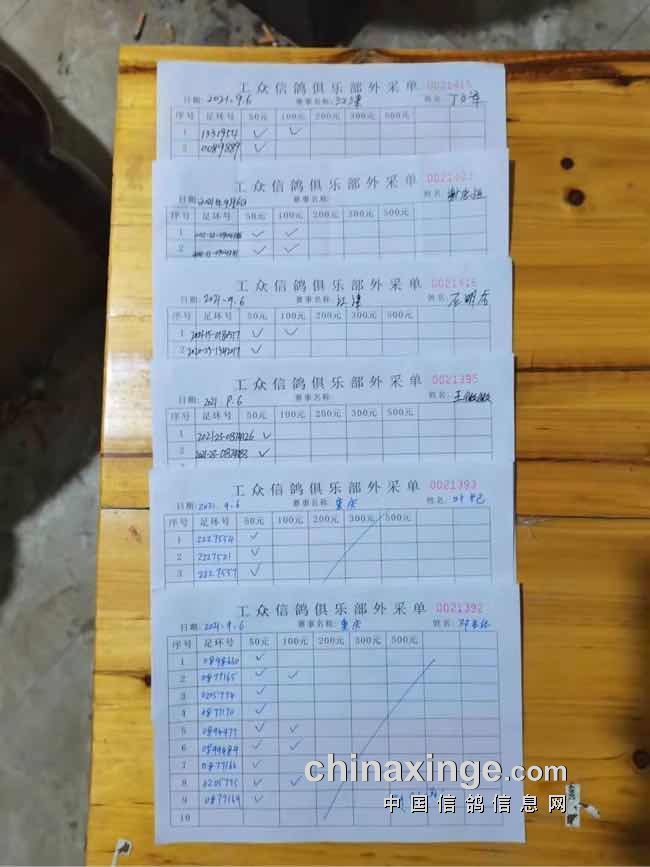 工众信鸽俱乐部外采单 0021415
日期: 2021.9.6 赛事名称: 江津 姓名:
序号 足环号 50元 100元 200元 300元 500元
1 1331954 ✓ ✓
2 0089889 ✓
工众信鸽俱乐部外采单
日期: 2021年9月6日 赛事名称: 姓名:
序号 足环号 50元 100元 200元 300元 500元
1 ✓ ✓
2 ✓ ✓
工众信鸽俱乐部外采单
日期: 2021.9.6 赛事名称: 江津 姓名:
序号 足环号 50元 100元 200元 300元 500元
1 ✓ ✓
2 ✓
工众信鸽俱乐部外采单 0021395
日期: 2021.9.6 赛事名称: 姓名:
序号 足环号 50元 100元 200元 300元 500元
1 ✓
2 ✓
工众信鸽俱乐部外采单 0021393
日期: 2021.9.6 赛事名称: 重庆 姓名:
序号 足环号 50元 100元 200元 300元 500元
1 2227554 ✓
2 2227521 ✓
3 2227557 ✓
工众信鸽俱乐部外采单 0021392
日期: 2021.9.6 赛事名称: 重庆 姓名:
序号 足环号 50元 100元 200元 300元 500元
1 ✓
2 0877165 ✓ ✓
3 0205794 ✓
4 0877170 ✓
5 0894477 ✓ ✓
6 0894484 ✓ ✓
7 0877166 ✓
8 0205795 ✓ ✓
9 0877169 ✓
10
chinaxinge.com
中国信鸽信息网